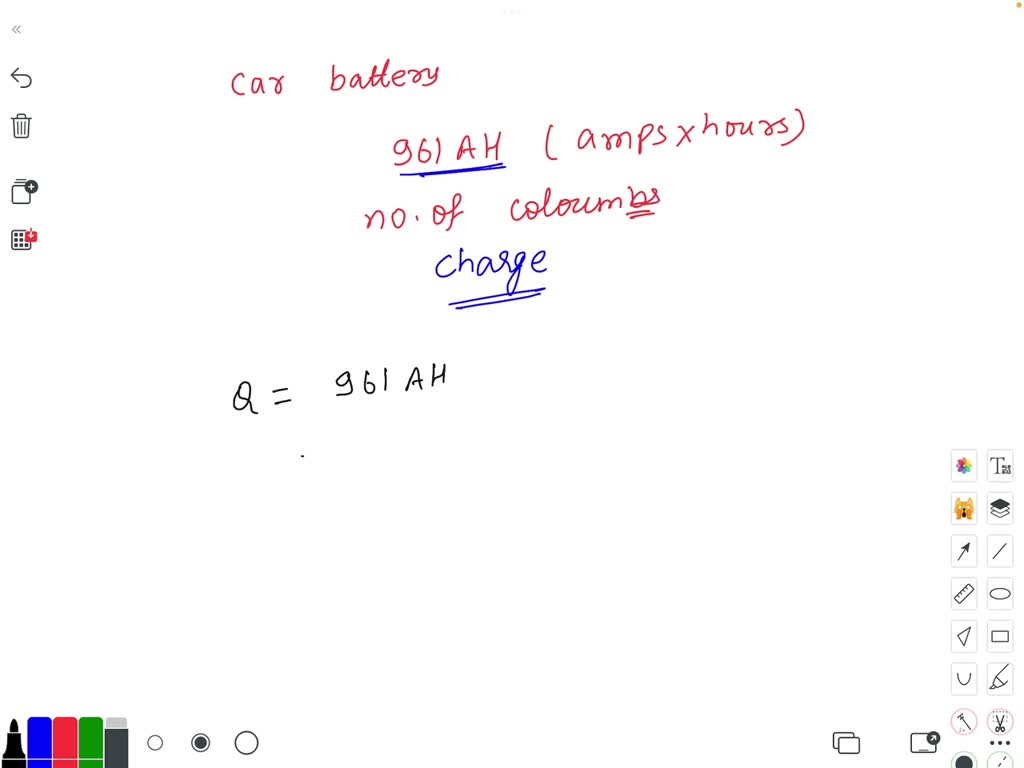 car battery
961 AH (amps x hours)
no. of coloumbs
charge
Q = 961 AH